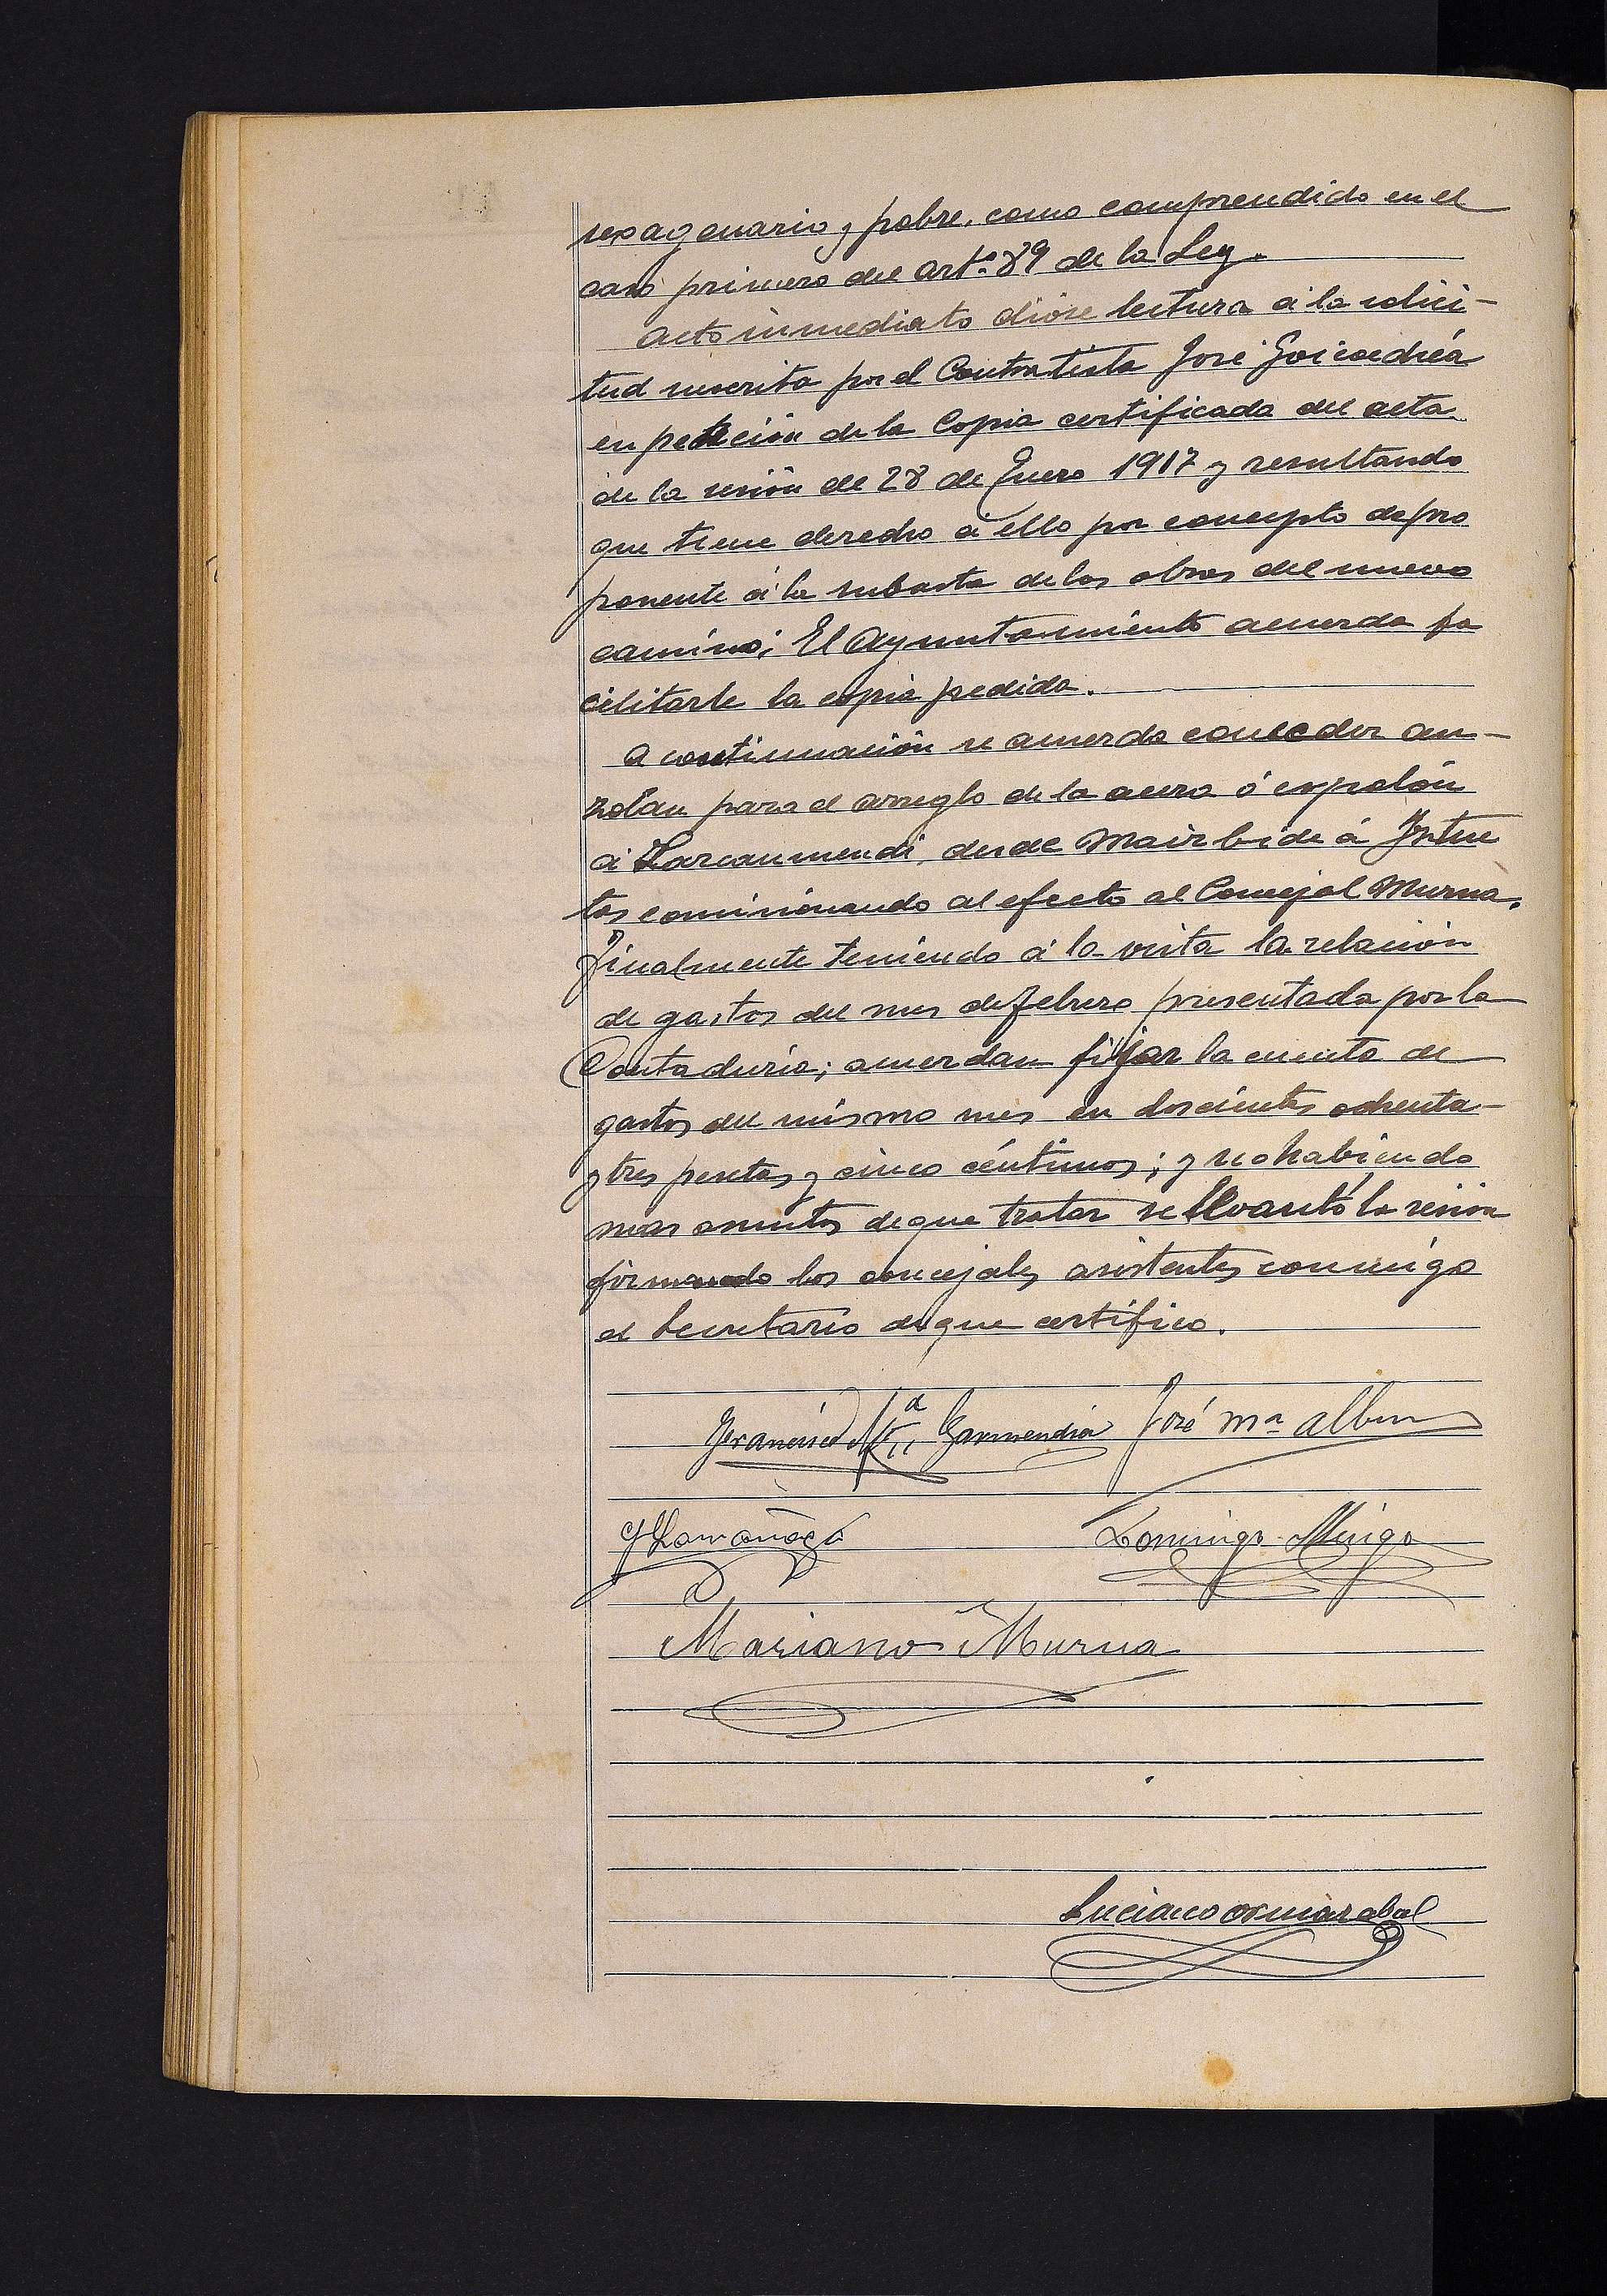 sexagenario y pobre, como comprendido en el
caso primero del artº 89 de la Ley.
Acto inmediato dióse lectura á la solici-
tud suscrita por el Contratista José Goicoechéa
en petición de la Copia certificada del acta
de la sesión de 28 de Enero 1917 y resultando
que tiene derecho á ello por concepto de pro
ponente á la subasta de las obras del nuevo
camino; El Ayuntamiento acuerda fa
cilitarle la copia pedida.
A continuación se acuerda conceder au-
zolan para el arreglo de la acera ó espolón
á Larcaumendi, desde Mairbide á
tos comisionando al efecto al Concejal Murua.
Finalmente teniendo á la vista la relación
de gastos del mes de febrero presentada por la
Contaduría; acuerdan fijar la cuenta de
gastos del mismo mes en doscientas ochenta-
y tres pesetas y cinco céntimos; y no habiendo
mas asuntos de que tratar se levantó la sesión
firmando los concejales asistentes conmigo
el Secretario de que certifico.
Francisco Mª Garmendia José Mª Albn
Y Larrañaga Domingo Muigo
Mariano Murua
Luciano Ormazabal